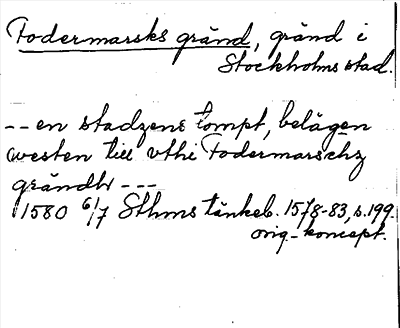 Fodermarsks gränd, gränd i
Stockholms stad.
-- en stadzens tompt, belägen
westen till vthi Fodermarschz
grändh ---
1580 6/7 Sthms tänkeb. 1578-83, s. 199.
orig.-koncept.